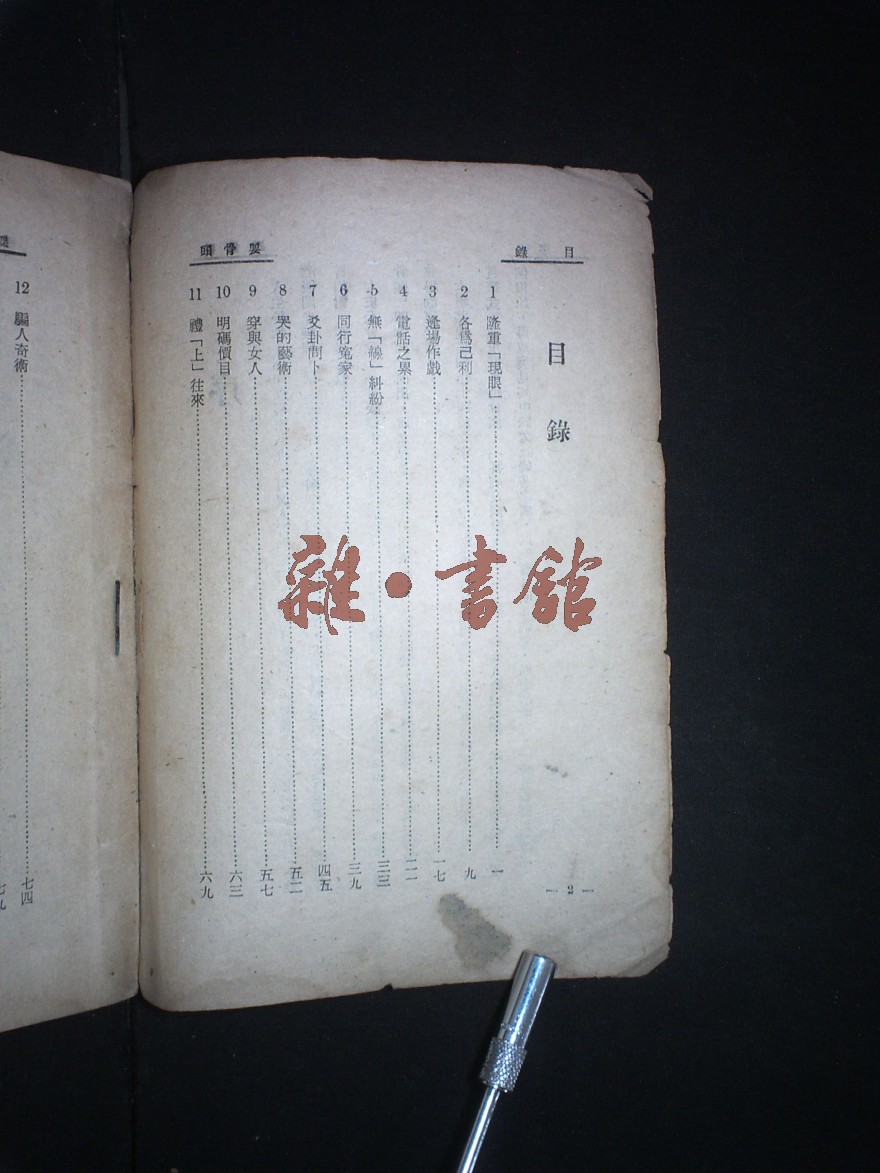 目錄
耍骨頭
目錄
1 隆重「現眼」 一
2 各爲己利 九
3 逢場作戲 一七
4 電話之累
5 無「線」糾紛 三三
6 同行冤家 三九
7 爻卦問卜 四五
8 哭的藝術 五二
9 穿與女人 五七
10 明碼價目 六三
11 禮「上」往來 六九
— 2 —
12 騙人奇術 七四
七九
雜·書館